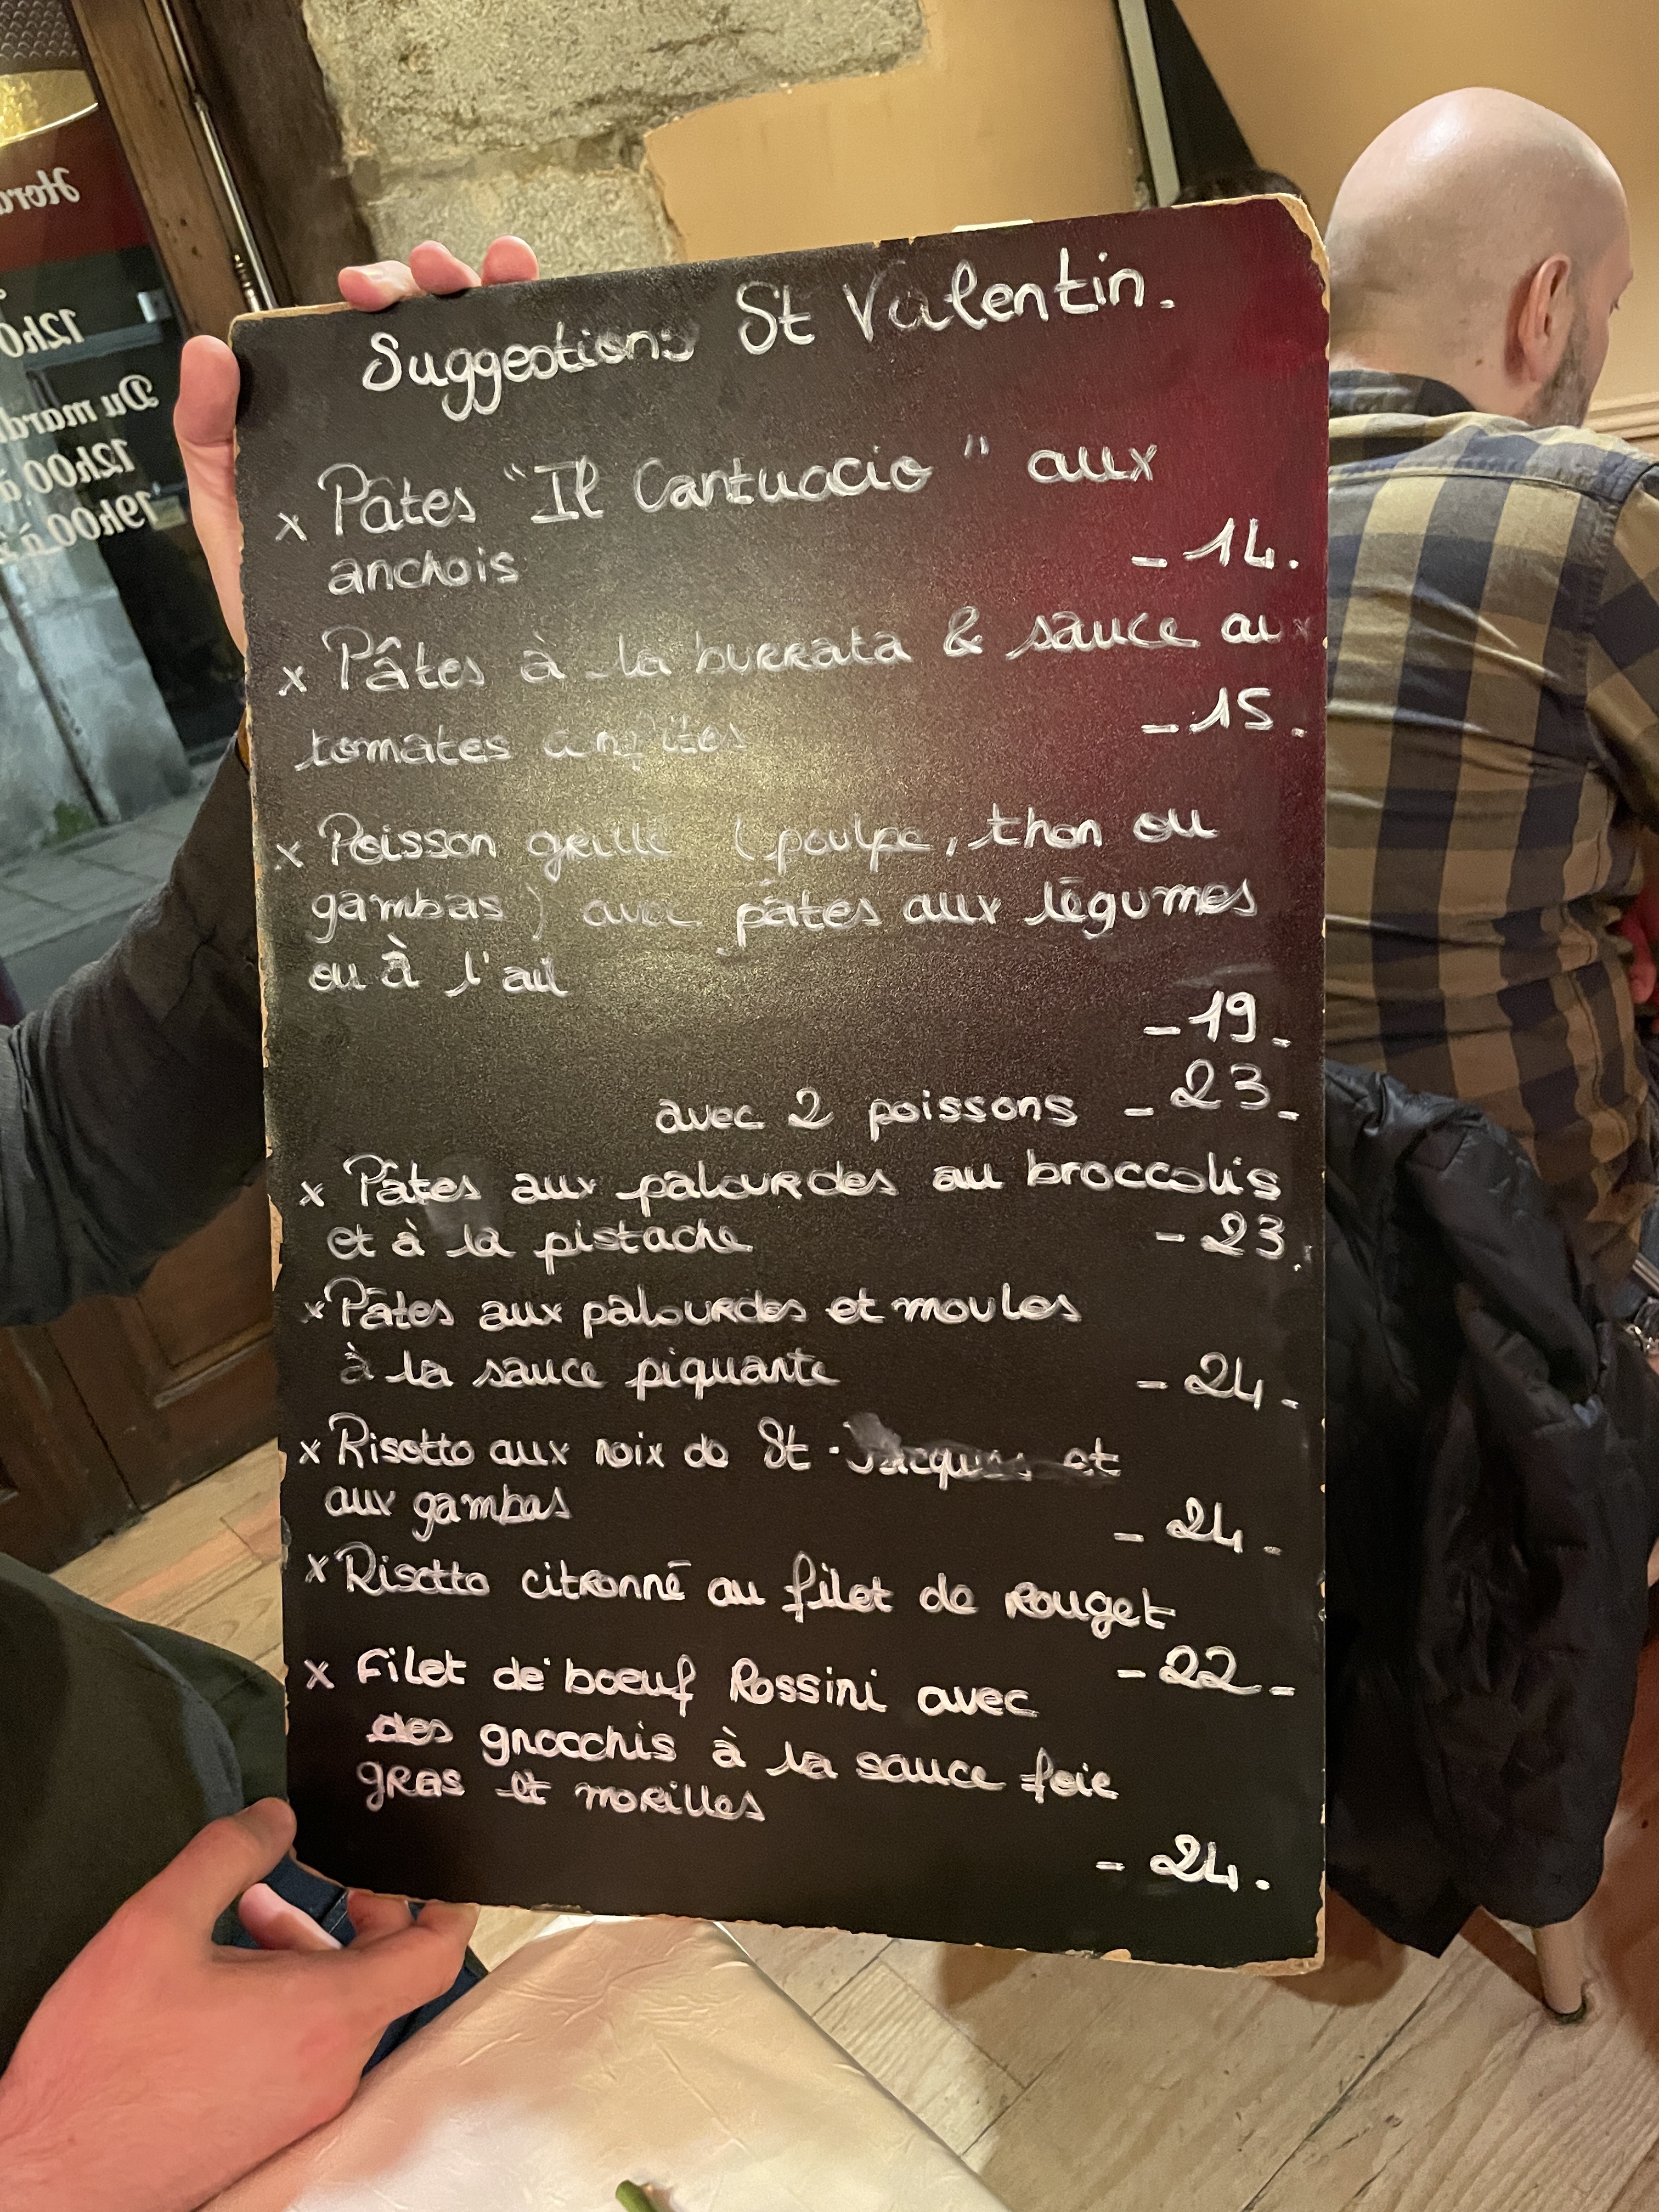 Suggestions St Valentin.
x Pâtes "Il Cantuccio" aux
anchois - 14.
x Pâtes à la burrata & sauce aux
tomates confites - 15.
x Poisson grillé (poulpe, thon ou
gambas) avec pâtes aux légumes
ou à l'ail
- 19 -
avec 2 poissons - 23 -
x Pâtes aux palourdes au broccolis
et à la pistache - 23.
x Pâtes aux palourdes et moules
à la sauce piquante - 24 -
x Risotto aux noix de St-Jacques et
aux gambas - 24 -
x Risotto citronné au filet de rouget
- 22 -
x Filet de boeuf Rossini avec
des gnocchis à la sauce foie
gras et morilles
- 24.
Du mardi
12h00 à
19h00 à